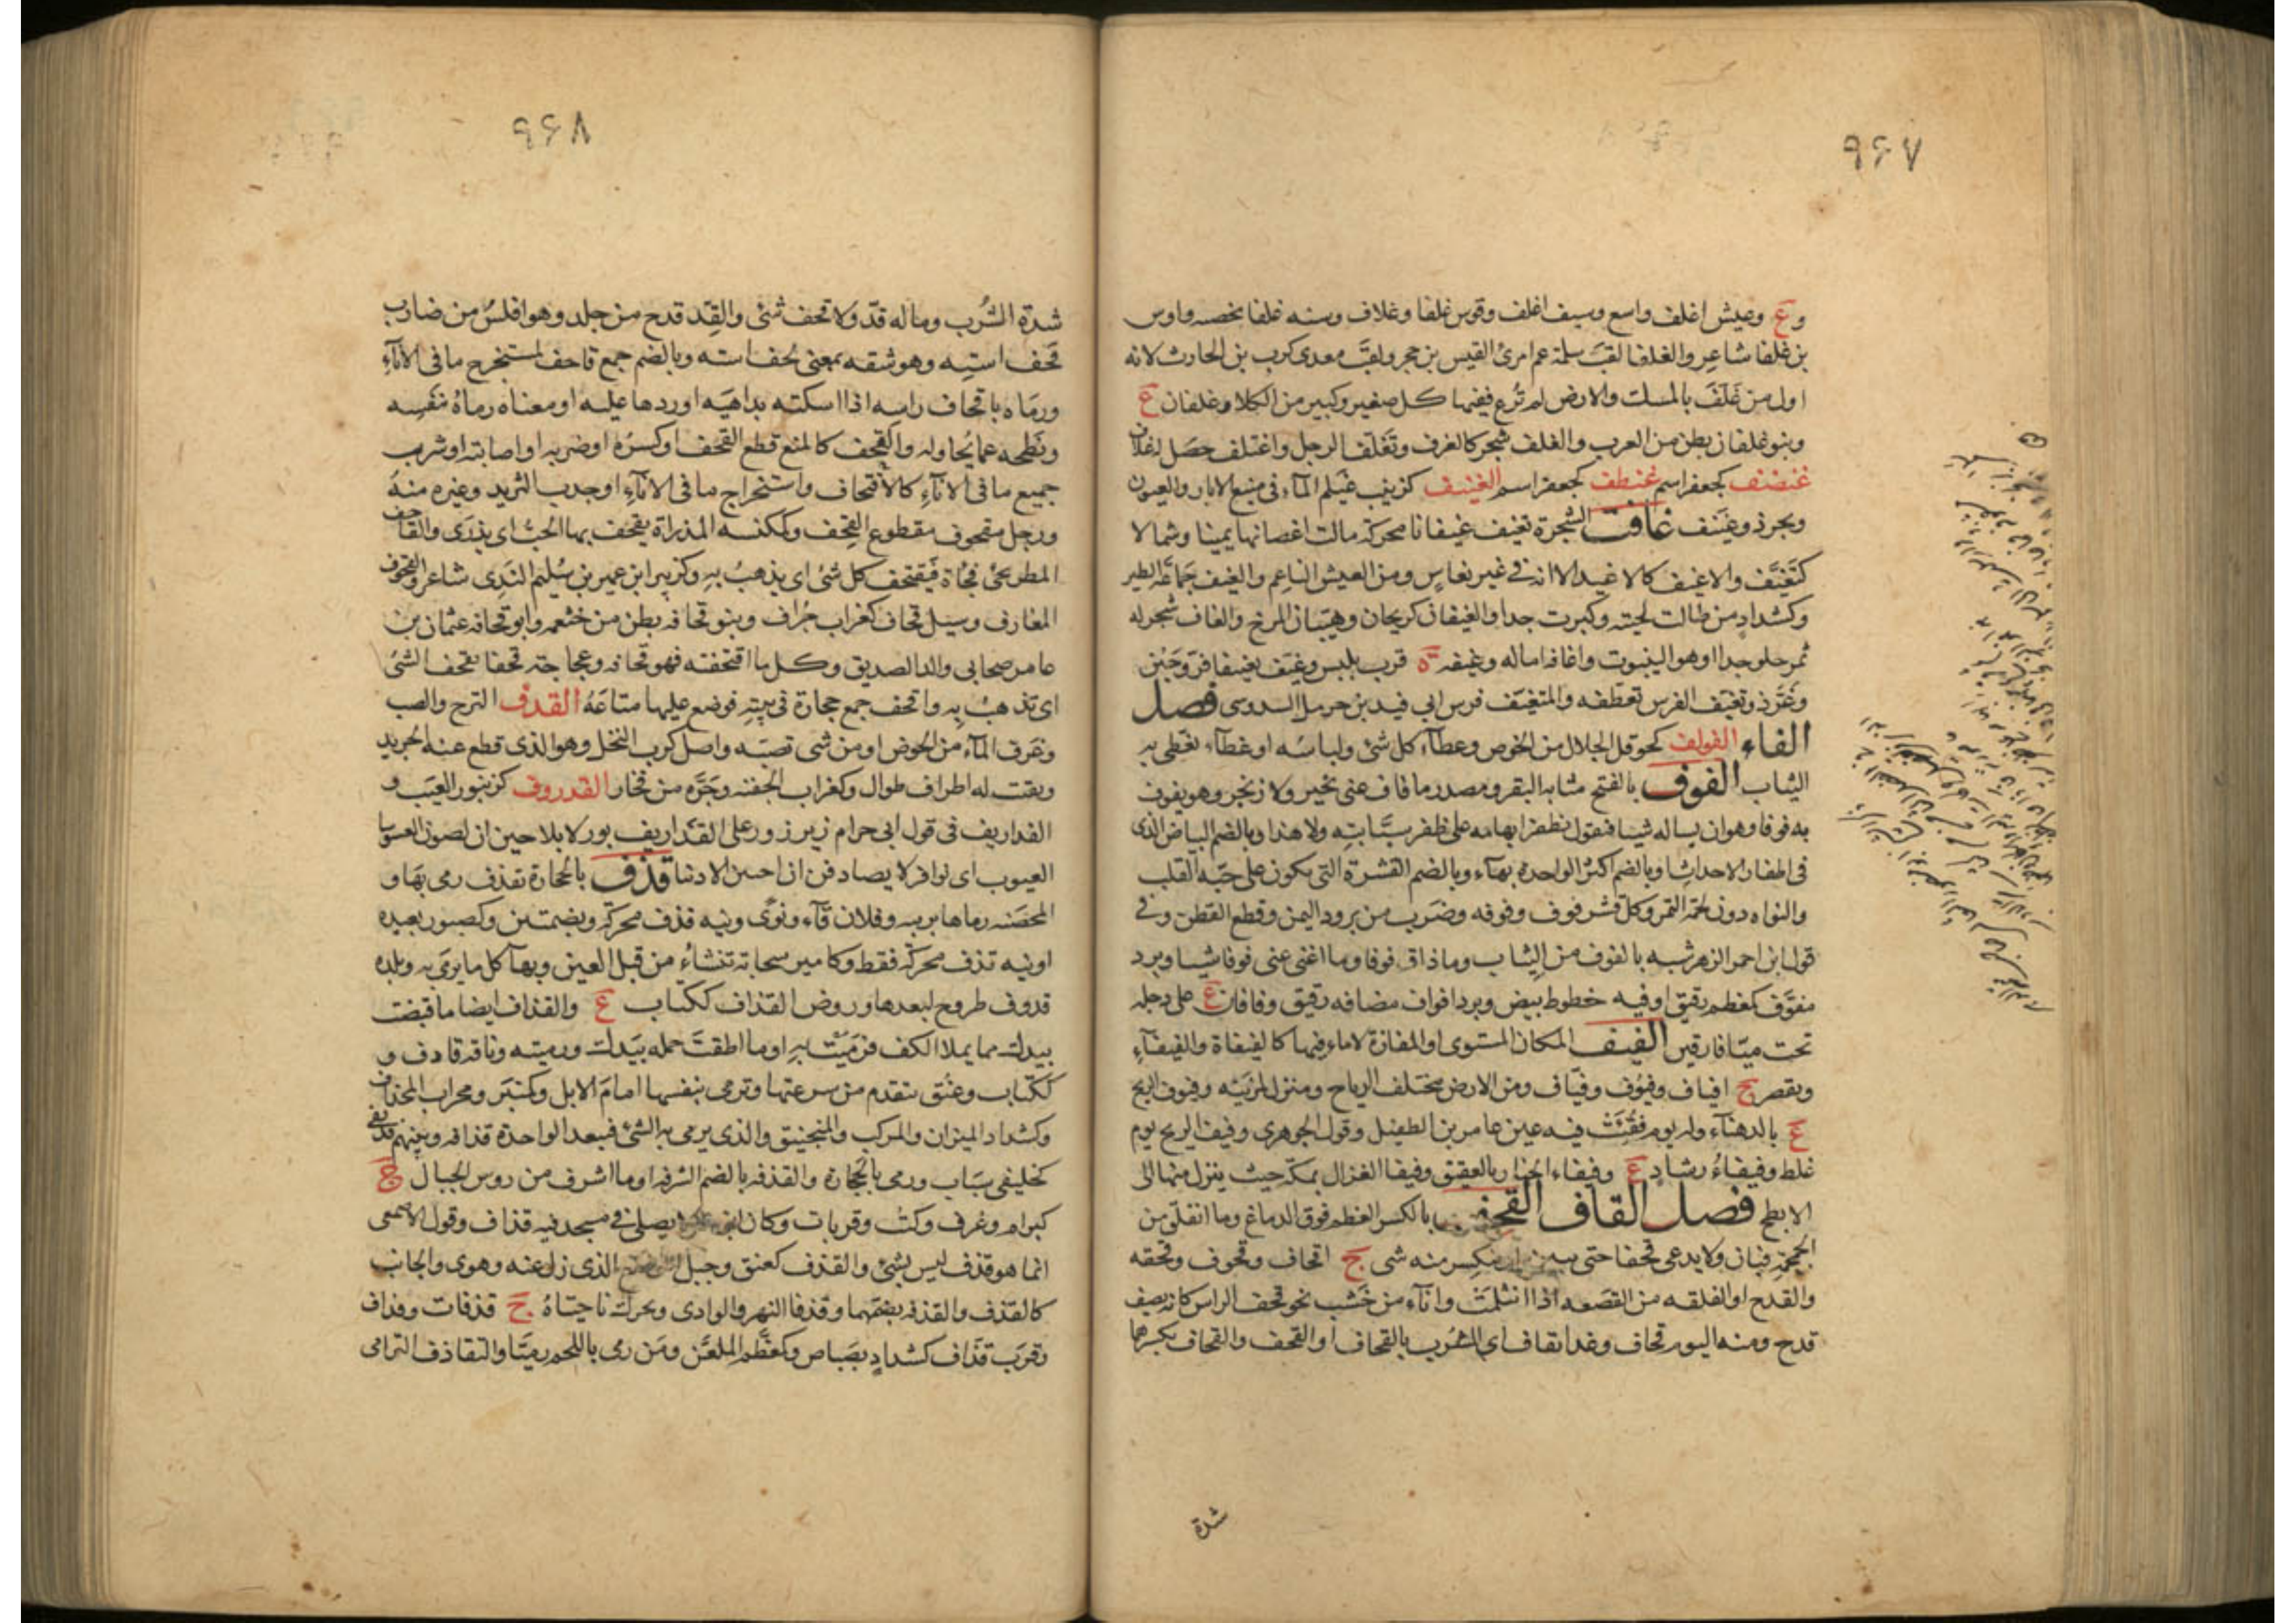 ۹۶۷
و ع وعيش اغلف واسع وسيف اغلف وقوس غلفا وغلاف وسنه غلفا مخصبه واوس
بن غلفا شاعر والغلفا لقب سلمة عم امرئ القيس بن حجر ولقب معدى كرب بن الحارث لانه
اول من غلف بالمسك والارض لم ترع ففيها كل صغير وكبير من الكلا وغلفان ع
وبنو غلفان بطن من العرب والغلف شجر كالغرف وتغلف الرجل واغتلف حصل له غلاف
غنضف كجعفر اسم غنطف كجعفر اسم الغينف كزينب غيلم المآء فى منبع الابار والعيون
وبحر ذو غينف غافت الشجرة تغيف غيفانا محركة مالت اغصانها يمينا وشمالا
كتغيف والاغيف كالاغيد الا انه فى غير نعاس ومن العيش الناعم والغيف جماعة الطير
وكشداد من طالت لحيته وكبرت جدا والغيفان كريحان وهيبان المرخ والغاف شجر له
ثمر حلو جدا او هو الينبوت واغافه اماله وغيفه ة قرب بلبيس وغيف تغييفا فر وجبن
وغرذ وتغيف الفرس تعطفه والمتغيف فرس ابى فيد بن حرمل السدوسى فصل
الفاء الفولف كحوقل الجلال من الخوص وغطاء كل شئ ولباسه او غطاء تغطى به
الثياب الفوف بالفتح مثانه البقر ومصدر ما فاف عنى بخير ولا زنجر وهو يفوف
به فوفا وهو ان يساله شيا فيقول بظفر ابهامه على ظفر سبابته ولا هذا وبالضم البياض الذى
فى اظفار الاحداث او بالضم اكثر الواحده بهاء وبالضم القشرة التى تكون على حبه القلب
والنواه دون لحمة التمر وكل قشر فوف وفوفه وضرب من برود اليمن وقطع القطن وفى
قول ابن احمر الزهر شبه بالفوف من الثياب وما ذاق فوفا وما اغنى عنى فوفا شيا وبرد
مفوف كمعظم رقيق او فيه خطوط بيض وبرد افواف مضافه رقيق وفافان ع على دجله
تحت ميافارقين الفيف المكان المستوى او المفازة لا ماء فيها كالفيفاة والفيفآء
ويقصر ج افياف وفيوف وفياف ومن الارض مختلف الرياح ومنزل لمزينه وفيف الريح
ع بالدهناء وله يوم فقئت فيه عين عامر بن الطفيل وقول الجوهرى وفيف الريح يوم
غلط وفيفاء رشاد ع وفيفاء الخبار بالعقيق وفيفا الغزال بمكة حيث ينزل منها الى
الابطح فصل القاف القحف بالكسر العظم فوق الدماغ وما انفلق من
الجمجمة فبان ولا يدعى قحفا حتى يبين او ينكسر منه شى ج اقحاف وقحوف وقحفه
والقدح او الفلقه من القصعه اذا انثلمت وانآء من خشب نحو قحف الراس كانه نصف
قدح ومنه اليوم قحاف وغدا نقاف اى الشرب بالقحاف او القحف والقحاف بكسرها
شدة
۹۶۸
شدة الشرب وما له قد ولا قحف شئ والقد قدح من جلد وهو افلس من ضارب
قحف استه وهو شقه بمعنى لحف استه وبالضم جمع قاحف لمستخرج ما فى الانآء
ورماه باقحاف راسه اذا اسكته بداهيه اوردها عليه او معناه رماه بنفسه
ونطحه عما يحاوله والقحف كالمنع قطع القحف او كسره او ضربه او اصابته او شرب
جميع ما فى الانآء كالاقتحاف واستخراج ما فى الانآء او جذب الثريد وغيره منه
ورجل مقحوف مقطوع القحف وكمكنسه المذراة يقحف بها الحب اى يذرى والقاحف
المطر يجئ فجاة فيقتحف كل شئ اى يذهب به وكزبير ابن عمير بن سليم الندى شاعر والقحوف
المغارف وسيل قحاف كغراب جراف وبنو قحافه بطن من خثعم وابو قحافه عثمان بن
عامر صحابى والد الصديق وكل ما اقتحفته فهو قحافه وعجاجة قحفا تقحف الشئ
اى تذهب به واقحف جمع حجارة فى بيته فوضع عليها متاعه القدف النزح والصب
وغرف المآء من الحوض او من شى تصبه واصل كرب النخل وهو الذى قطع عنه الجريد
وبقت له اطراف طوال وكغراب الجفنه وجره من فخار القدروف كزنبور العيب و
القداريف فى قول ابى حزام زير زور على القذاريف بور لا بلاحين ان لصون الغسوسا
العيوب اى نوافر لا يصادفن ان احسن الادنا قذف بالحجارة يقذف رمى بها و
المحصنه رماها بريبه وفلان قآء ونوى ونيه قذف محركة وبضمتين وكصبور بعيده
او نيه قذف محركة فقط وكامير سحابة تنشاء من قبل العين وبهآ كل ما يرمى به وبلده
قذوف طروح لبعدها وروض القذاف ككتاب ع والقذاف ايضا ما قبضت
بيدك مما يملا الكف فرميت به او ما اطقت حمله بيدك ورميته وناقه قاذف و
ككتاب وعنق تتقدم من سرعتها وترمى بنفسها امام الابل وكمنبر ومحراب المجذاف
وكشداد الميزان والمركب والمنجنيق والذى يرمى به الشئ فيبعد الواحدة قذافه وبينهم قذيفى
كخليفى سباب ورمى بالحجارة والقذفه بالضم الشرفه او ما اشرف من روس الجبال ج
كبرام وغرف وكتب وقربات وكان ابن عمر لا يصلى فى مسجد فيه قذاف وقول الاصمعى
انما هو قذف ليس بشئ والقذف كعنق وجبل الموضع الذى زل عنه وهوى والجانب
كالقذف والقذفه بضمهما وقذفا النهر والوادى ويحرك ناحيتاه ج قذفات وقذاف
وقرب قذاف كشداد بصباص وكمعظم الملعن ومن رمى باللحم رميا والتقاذف الترامى